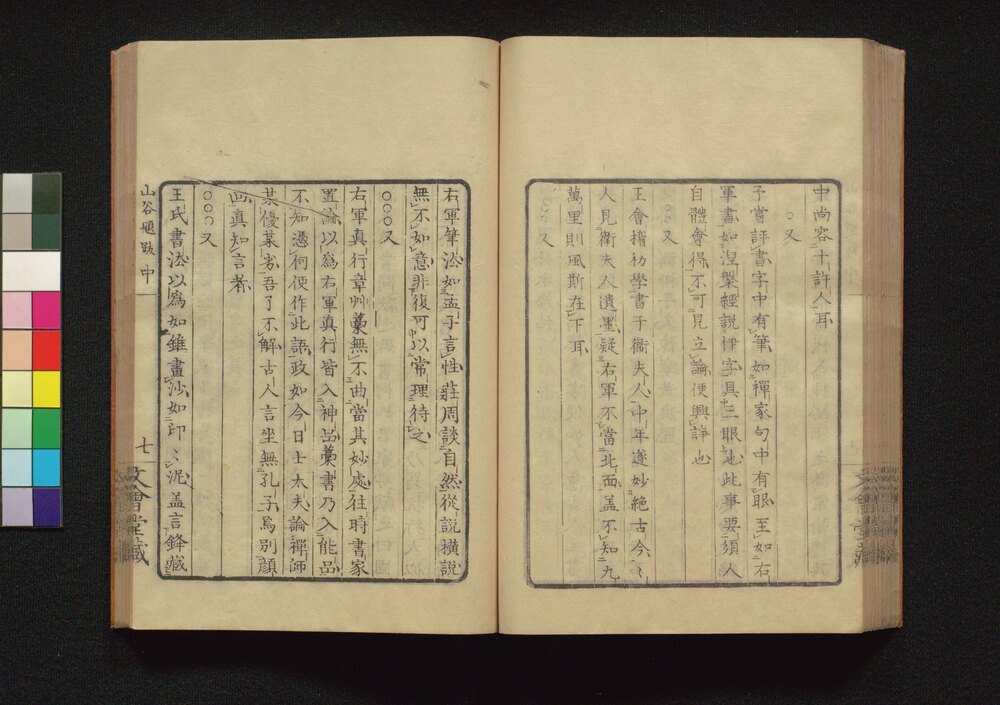 中尚容二十許人耳
○又
予嘗評書字中有筆如禪家句中有眼至如右
軍書如涅槃經說伊字具三眼也此事要須人
自體會得不可見立論便興諍也
○○○又
王會稽初學書于衞夫人中年遂妙絕古今〻
人見衛夫人遺墨疑右軍不當北面盖不知九
萬里則風斯在下耳
○○○又
右軍筆法如孟子言性莊周談自然從說橫說
無不如意非復可以常理待之
○○○又
右軍真行章艸藁無不曲當其妙處往時書家
置論以為右軍真行皆入神品藁書乃入能品
不知憑何便作此語政如今日士大夫論禪師
某優某劣吾了不解古人言坐無孔子焉別顏
回真知言者
○○○又
王氏書法以為如錐畫沙如印〻泥盖言鋒藏
山谷題跋 中
七
文會堂藏
文會堂藏